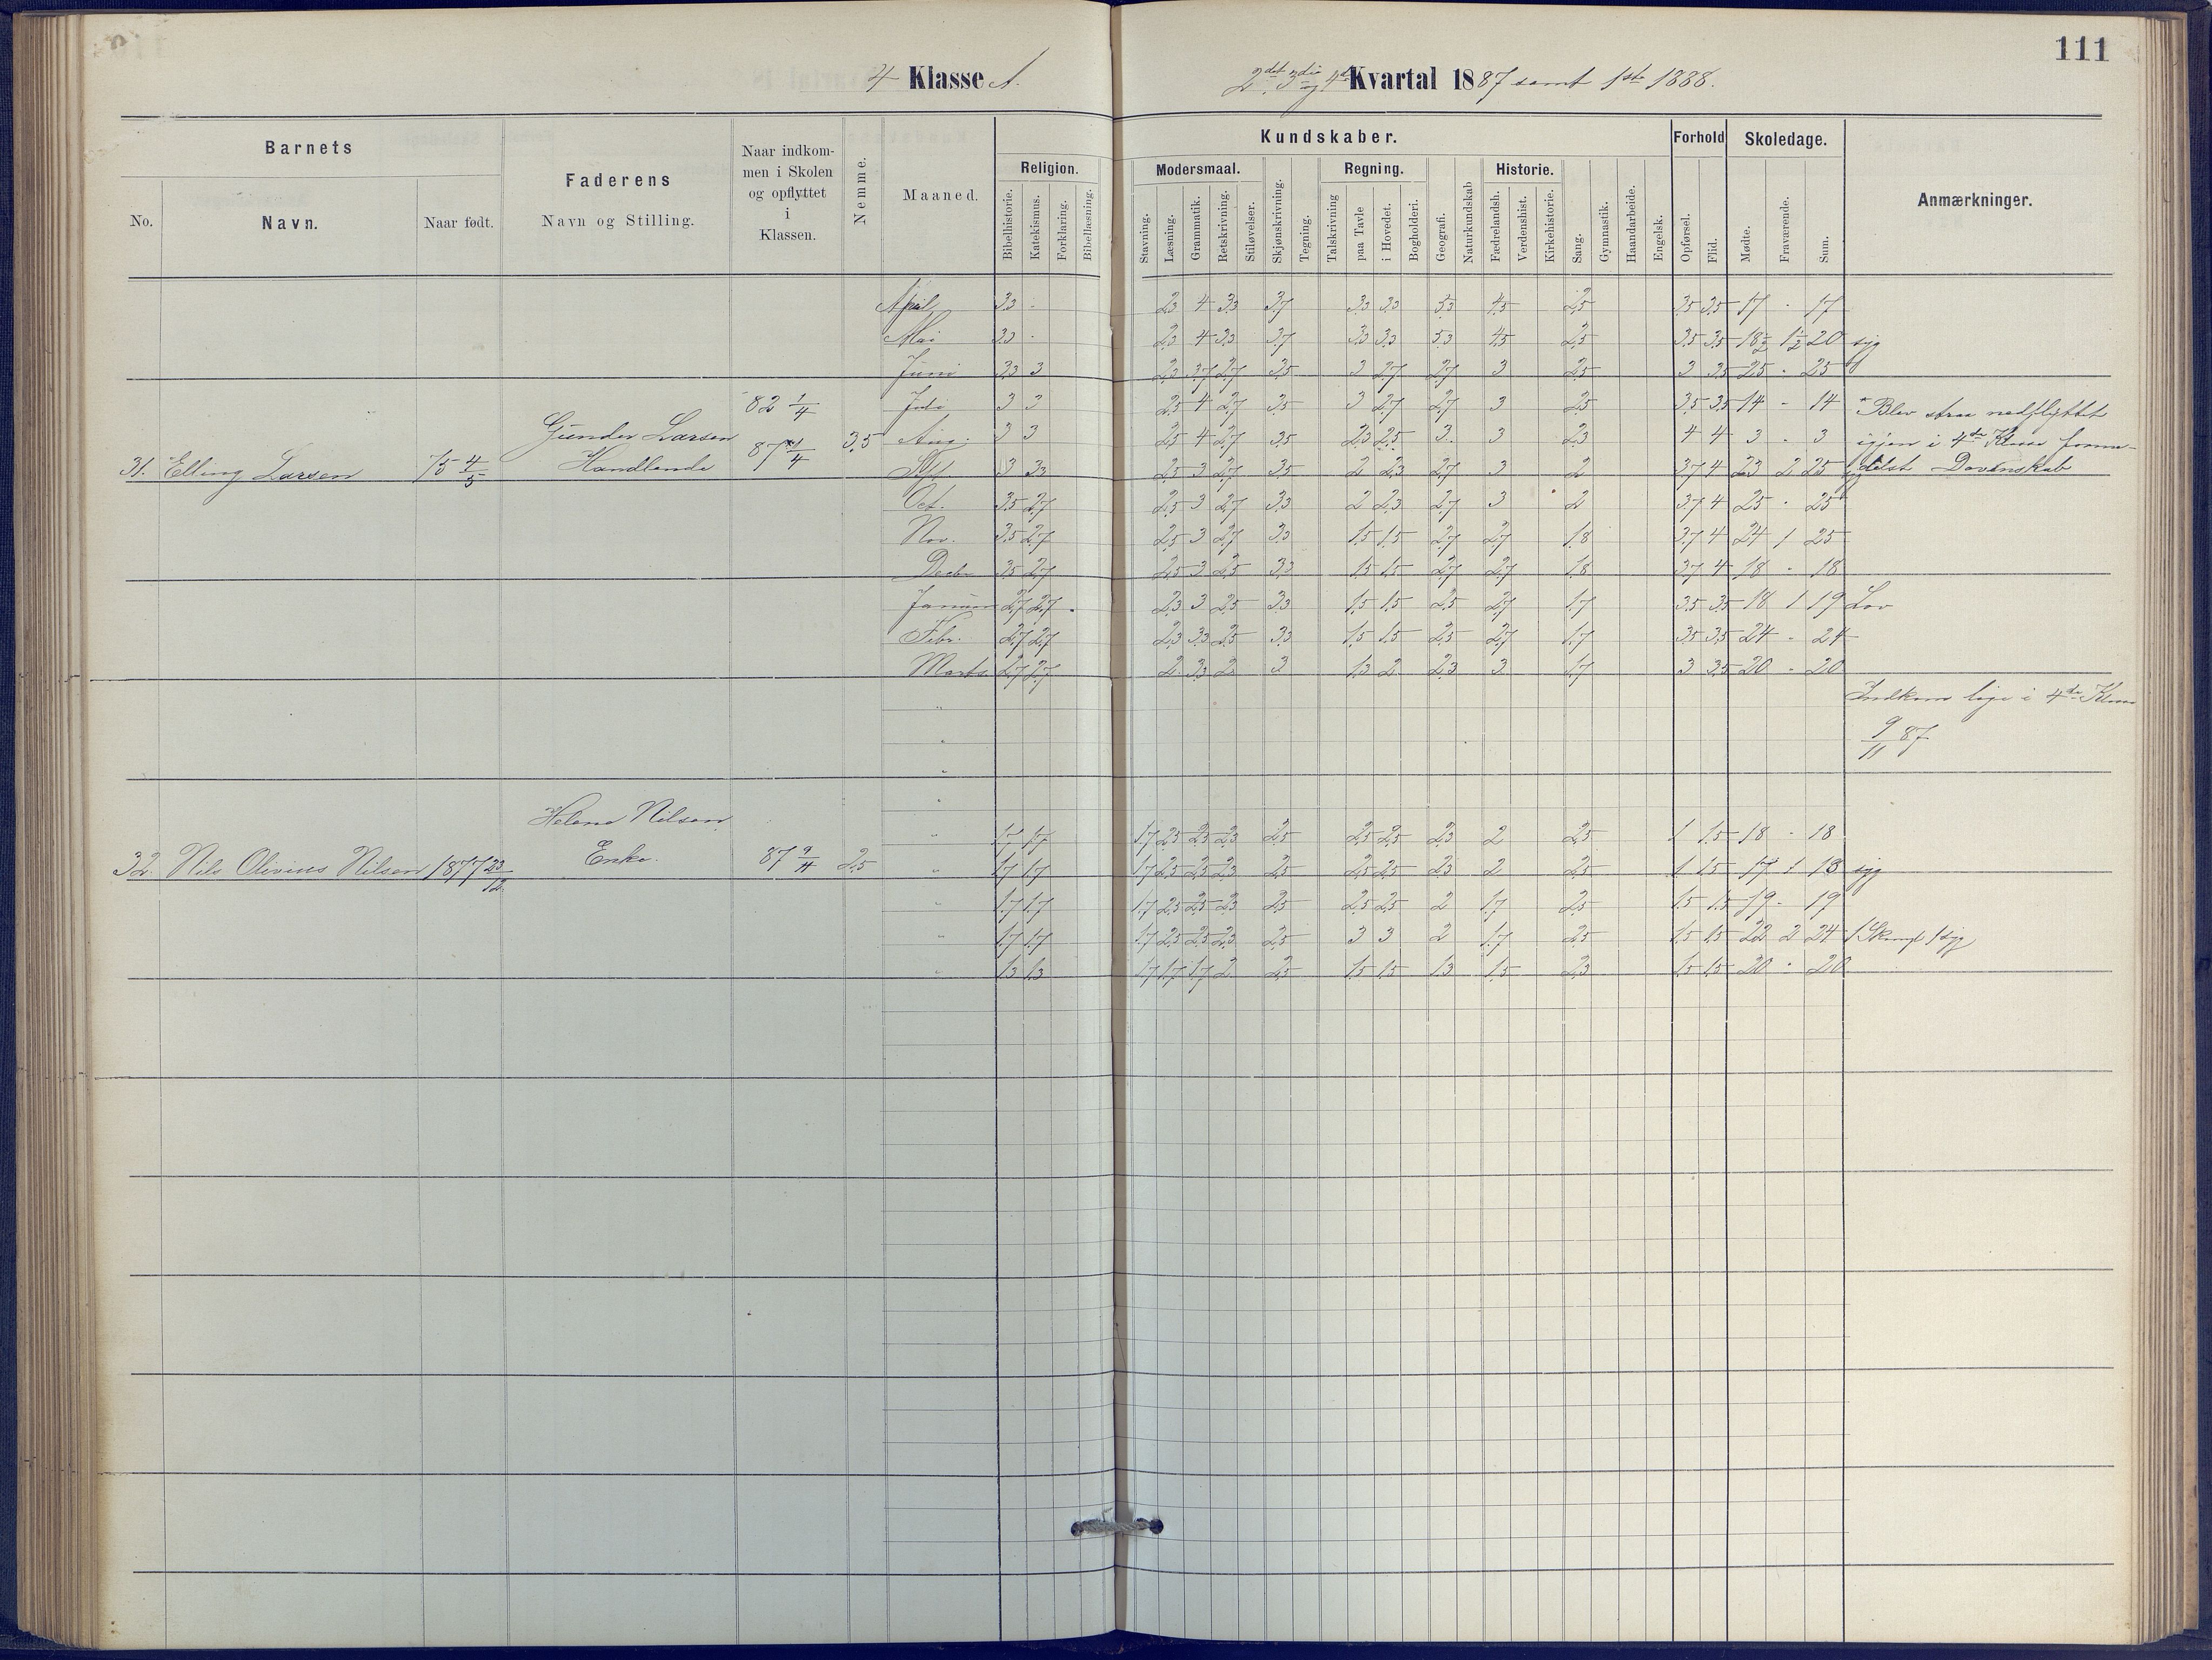 111
4 Klasse A.
2det, 3die og 4de Kvartal 1887 samt 1ste 1888.
Barnets
No.
Navn.
Naar født.
Faderens
Navn og Stilling.
Naar indkom-
men i Skolen
og opflyttet
i
Klassen.
Nemme.
Maaned.
Kundskaber.
Religion.
Bibelhistorie.
Katekismus.
Forklaring.
Bibellæsning.
Modersmaal.
Stavning.
Læsning.
Grammatik.
Retskrivning.
Stiløvelser.
Skjønskrivning.
Tegning.
Regning.
Talskrivning
paa Tavle
i Hovedet.
Bogholderi.
Geografi.
Naturkundskab
Historie.
Fædrelandsh.
Verdenshist.
Kirkehistorie.
Sang.
Gymnastik.
Haandarbeide.
Engelsk.
Forhold
Opførsel.
Flid.
Skoledage.
Mødte.
Fraværende.
Sum.
Anmærkninger.
April 3,3 - 2,3 4 3,3 3,7 3,3 3,3 3,3 4,5 2,5 3,5 3,5 17 - 17
Mai 3,3 - 2,3 4 3,3 3,7 3,3 3,3 3,3 4,5 2,5 3,5 3,5 18½ 1½ 20 syg
Juni 3,3 3 2,3 3,7 2,7 3,5 3 2,7 2,7 3 2,5 3 3,5 25 - 25
Juli 3 3 2,5 4 2,7 3,5 3 2,7 2,7 3 2,5 3,5 3,5 14 - 14
Aug. 3 3 2,5 4 2,7 3,5 2,3 2,5 3 3 2,3 4 4 3 - 3
Spt. 3 3,3 2,5 3 2,7 3,5 2 2,3 2,7 3 2 3,7 4 23 2 25
Oct. 3,5 2,7 2,5 3 2,7 3,3 2 2,3 2,7 3 2 3,7 4 25 - 25
Nov. 3,5 2,7 2,5 3 2,7 3,3 1,5 1,5 2,7 2,7 1,8 3,7 4 24 1 25
Decbr 3,5 2,7 2,5 3 2,5 3,3 1,5 1,5 2,7 2,7 1,8 3,7 4 18 - 18
Januar 2,7 2,7 2,3 3 2,5 3,3 1,5 1,5 2,5 2,7 1,7 3,5 3,5 18 1 19 Lov
Febr. 2,7 2,7 2,3 3,3 2,5 3,3 1,5 1,5 2,5 2,7 1,7 3,5 3,5 24 - 24
Marts 2,7 2,7 2 3,3 2 3 1,3 2 2,3 3 1,7 3 3,5 20 - 20
31. Elling Larsen 75 4/5
Gunder Larsen
Handlende
82 1/4
87 1/4
3,5
* Blev strax nedflyttet
igjen i 4de Klasse forme-
delst Dovenskab
Indkom lige i 4de Klasse
9/11 87
32. Nils Olivius Nilsen 1877 23/12
Helene Nilsen
Enke.
87 9/11
2,5
1,7 1,7 1,7 2,5 2,5 2,3 2,5 2,5 2,5 2,3 2 2,5 1 1,5 18 - 18
1,7 1,7 1,7 2,5 2,5 2,3 2,5 2,5 2,5 2,3 2 2,5 1 1,5 17 1 18 syg
1,7 1,7 1,7 2,5 2,5 2,3 2,5 2,5 2,5 2 1,7 2,5 1,5 1,5 19 - 19
1,7 1,7 1,7 2,5 2,5 2,3 2,5 3 3 2 1,7 2,5 1,5 1,5 22 2 24 1 1 syg
1,3 1,3 1,7 1,7 1,7 2 2,5 1,5 1,5 1,3 1,5 2,3 1,5 1,5 20 - 20